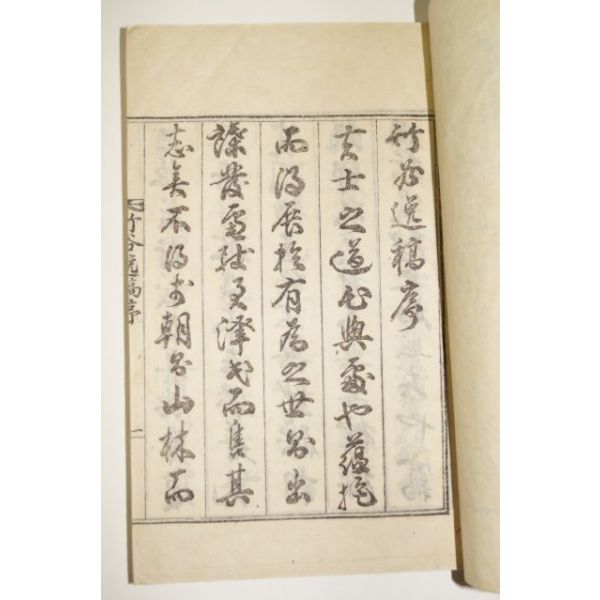 竹谷逸稿序
夫士之道出與處也蘊抱
而得展於有爲之世則出
謀發慮致君澤民而售其
志矣不得於朝則山林而
竹谷逸稿序 一